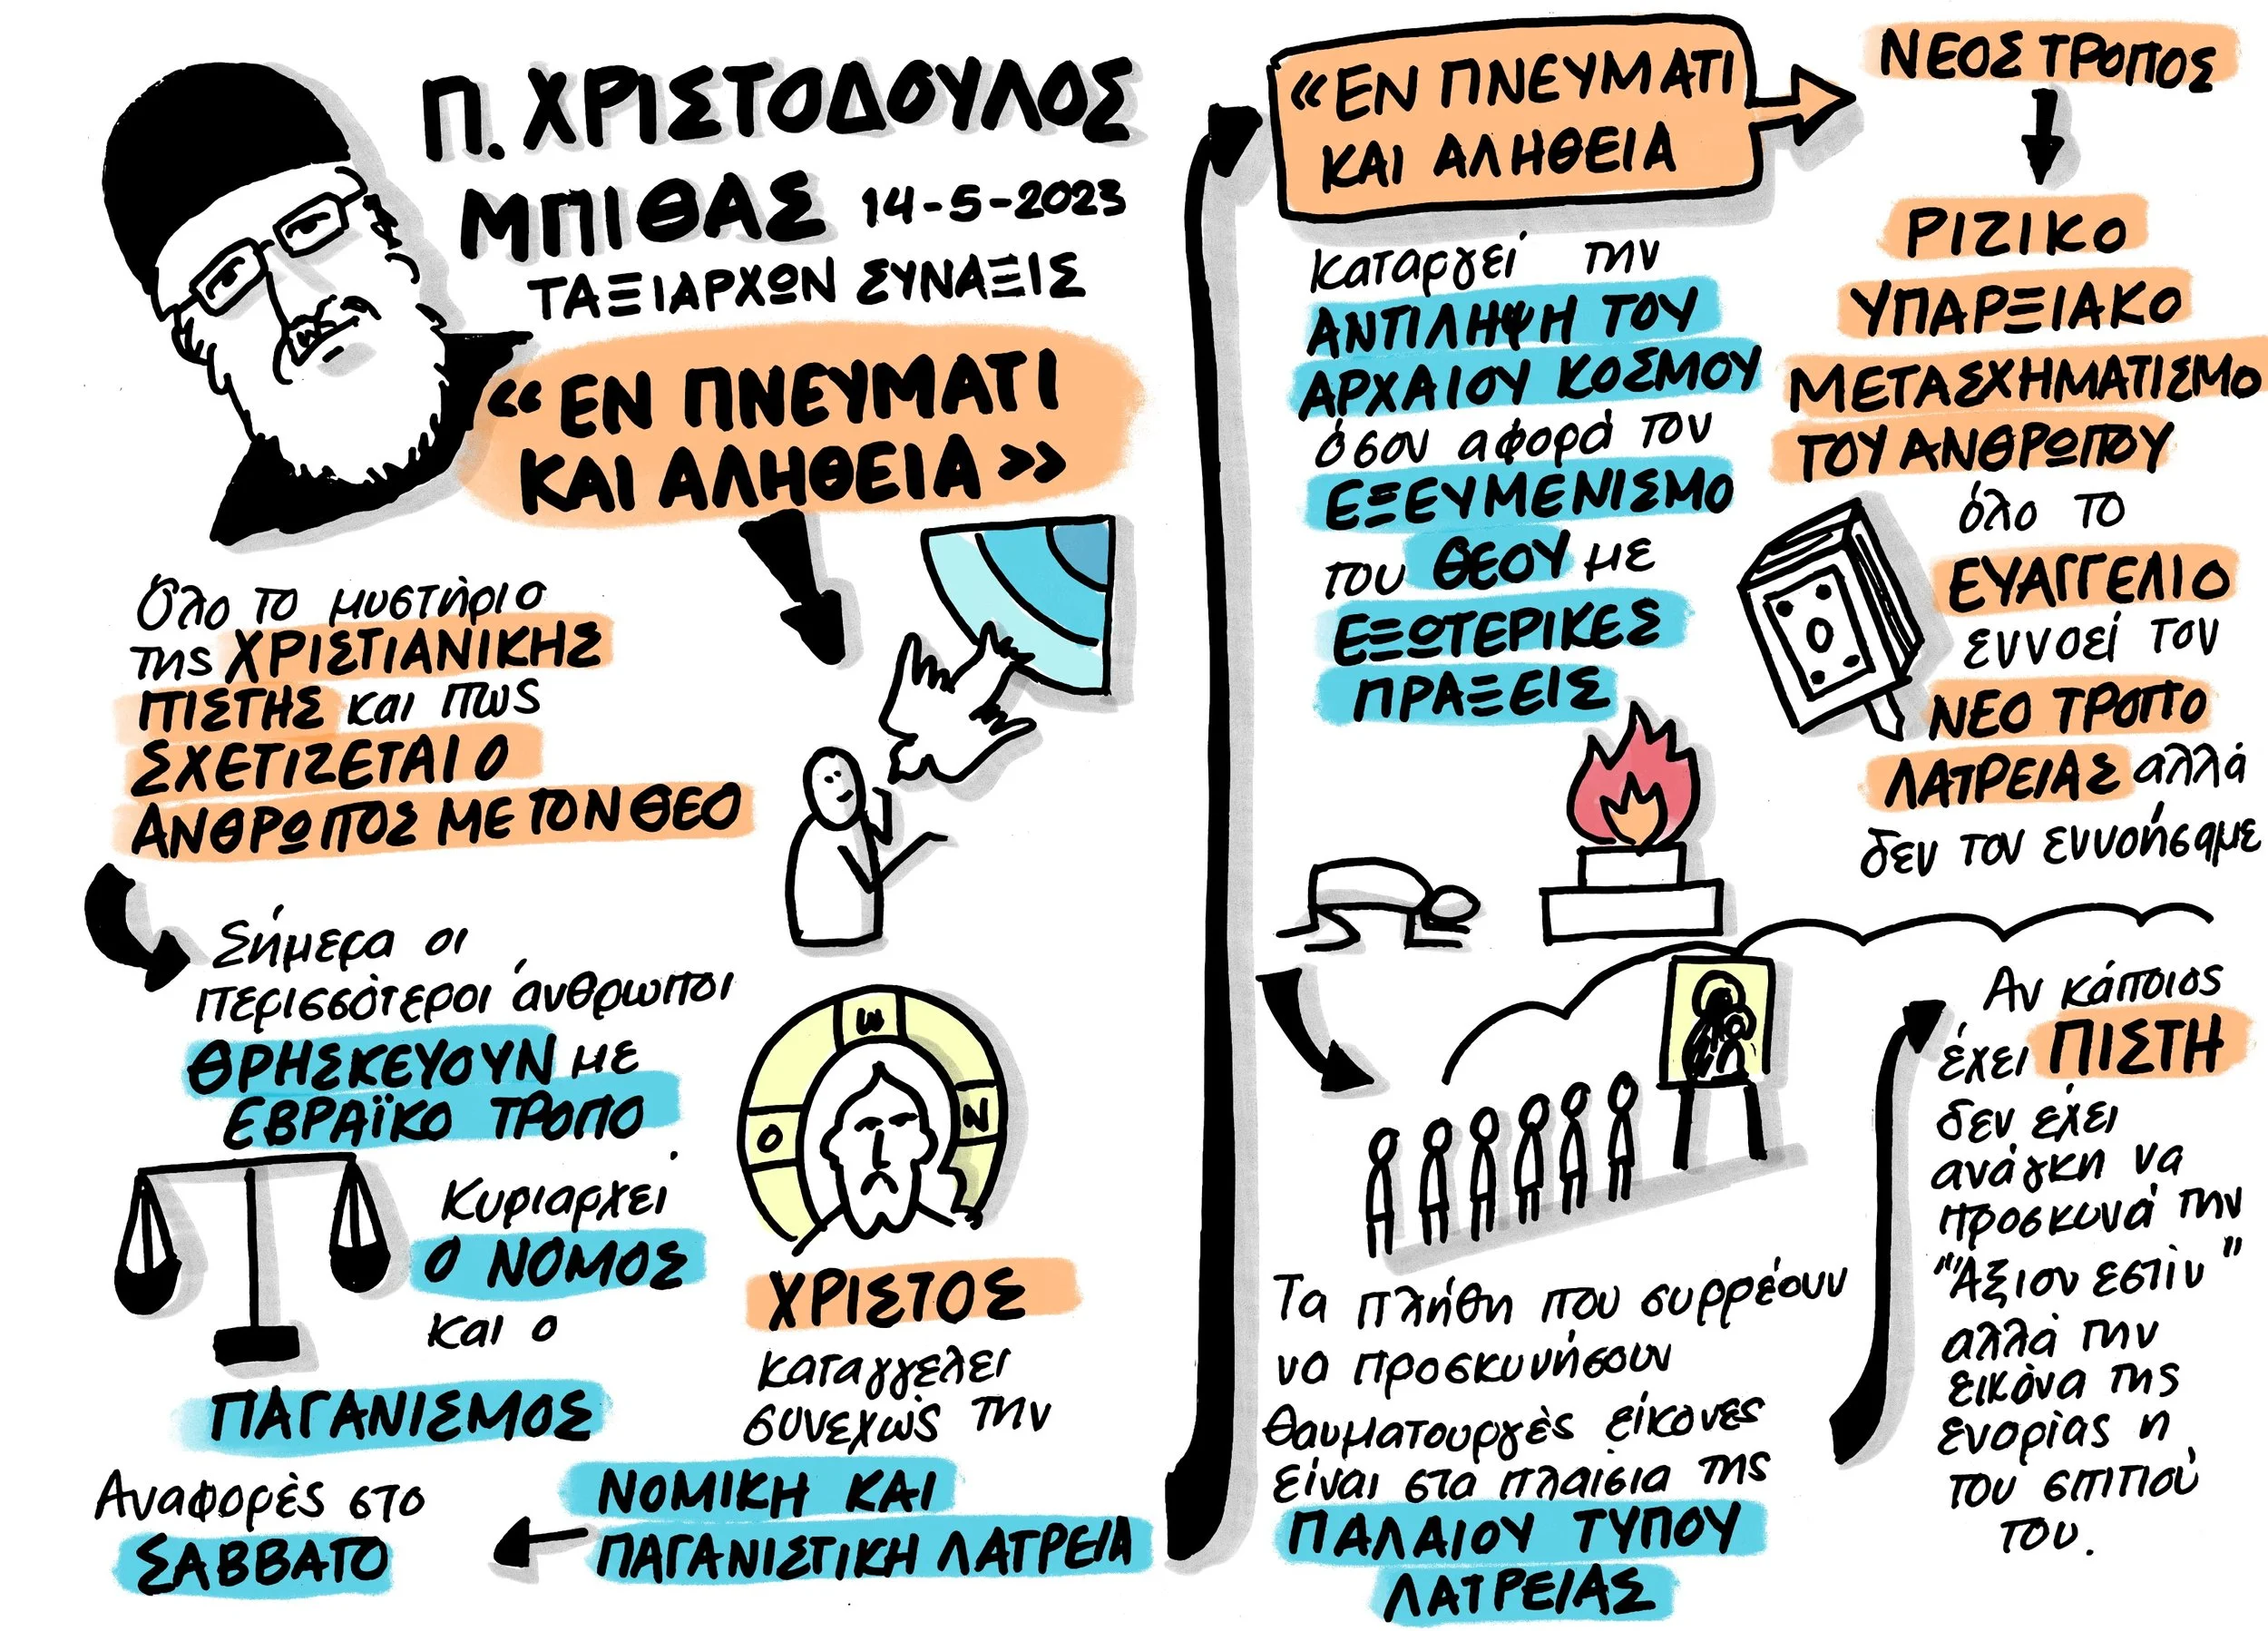 Π. ΧΡΙΣΤΟΔΟΥΛΟΣ
ΜΠΙΘΑΣ 14-5-2023
ΤΑΞΙΑΡΧΩΝ ΣΥΝΑΞΙΣ
«ΕΝ ΠΝΕΥΜΑΤΙ
ΚΑΙ ΑΛΗΘΕΙΑ»
Όλο το μυστήριο
της ΧΡΙΣΤΙΑΝΙΚΗΣ
ΠΙΣΤΗΣ και πως
ΣΧΕΤΙΖΕΤΑΙ Ο
ΑΝΘΡΩΠΟΣ ΜΕ ΤΟΝ ΘΕΟ
Σήμερα οι
περισσότεροι άνθρωποι
ΘΡΗΣΚΕΥΟΥΝ με
ΕΒΡΑΪΚΟ ΤΡΟΠΟ
Κυριαρχεί
Ο ΝΟΜΟΣ
και ο
ΠΑΓΑΝΙΣΜΟΣ
Ο
ω
Ν
ΧΡΙΣΤΟΣ
καταγγελει
συνεχώς την
ΝΟΜΙΚΗ ΚΑΙ
ΠΑΓΑΝΙΣΤΙΚΗ ΛΑΤΡΕΙΑ
Αναφορές στο
ΣΑΒΒΑΤΟ
«ΕΝ ΠΝΕΥΜΑΤΙ
ΚΑΙ ΑΛΗΘΕΙΑ
καταργεί την
ΑΝΤΙΛΗΨΗ ΤΟΥ
ΑΡΧΑΙΟΥ ΚΟΣΜΟΥ
όσον αφορά τον
ΕΞΕΥΜΕΝΙΣΜΟ
του ΘΕΟΥ με
ΕΞΩΤΕΡΙΚΕΣ
ΠΡΑΞΕΙΣ
Τα πλήθη που συρρέουν
να προσκυνήσουν
θαυματουργές εικόνες
είναι στα πλαίσια της
ΠΑΛΑΙΟΥ ΤΥΠΟΥ
ΛΑΤΡΕΙΑΣ
ΝΕΟΣ ΤΡΟΠΟΣ
ΡΙΖΙΚΟ
ΥΠΑΡΞΙΑΚΟ
ΜΕΤΑΣΧΗΜΑΤΙΣΜΟ
ΤΟΥ ΑΝΘΡΩΠΟΥ
όλο το
ΕΥΑΓΓΕΛΙΟ
εννοεί τον
ΝΕΟ ΤΡΟΠΟ
ΛΑΤΡΕΙΑΣ αλλά
δεν τον εννοήσαμε
Αν κάποιος
έχει ΠΙΣΤΗ
δεν έχει
ανάγκη να
προσκυνά την
"Άξιον εστίν"
αλλά την
εικόνα της
ενορίας η
του σπιτιού
του.